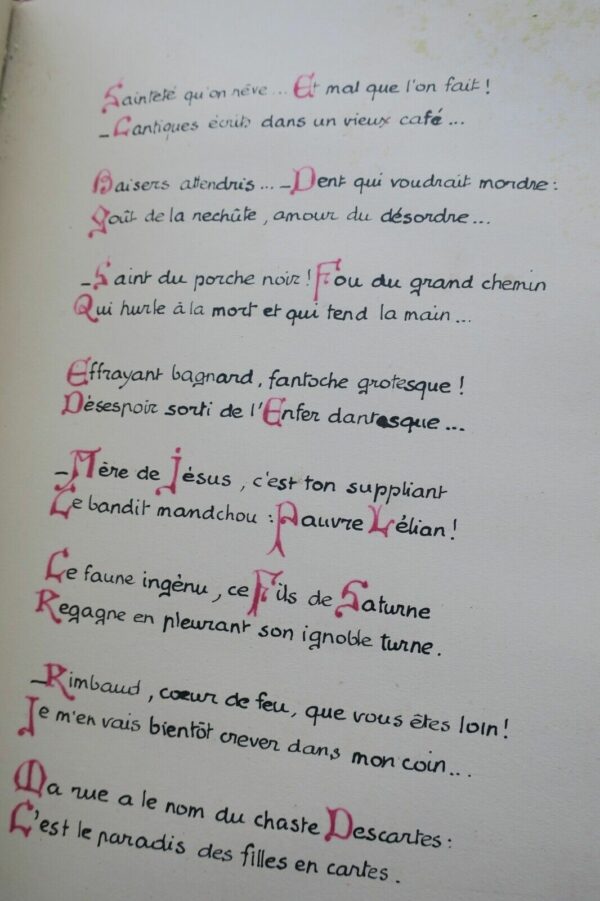 Sainteté qu'on rêve... Et mal que l'on fait !
_Cantiques écrits dans un vieux café...
Baisers attendris... _Dent qui voudrait mordre :
goût de la rechûte, amour du désordre...
_Saint du porche noir ! Fou du grand chemin
Qui hurle à la mort et qui tend la main...
Effrayant bagnard, fantoche grotesque !
Désespoir sorti de l'Enfer dantesque...
_Mère de Jésus, c'est ton suppliant
Le bandit mandchou : Pauvre Lélian !
Le faune ingénu, ce Fils de Saturne
Regagne en pleurant son ignoble turne.
_Rimbaud, cœur de feu, que vous êtes loin !
Je m'en vais bientôt crever dans mon coin...
Ma rue a le nom du chaste Descartes :
C'est le paradis des filles en cartes.